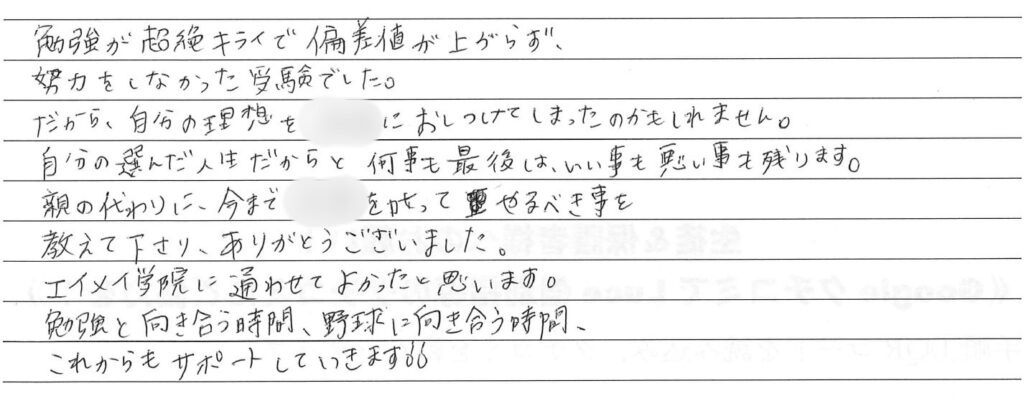 勉強が超絶キライで偏差値が上がらず、
努力をしなかった受験でした。
だから、自分の理想を におしつけてしまったのかもしれません。
自分の選んだ人生だからと何事も最後は、いい事も悪い事も残ります。
親の代わりに、今まで を叱って やるべき事を
教えて下さり、ありがとうございました。
エイメイ学院に通わせてよかったと思います。
勉強と向き合う時間、野球に向き合う時間、
これからもサポートしていきます!!